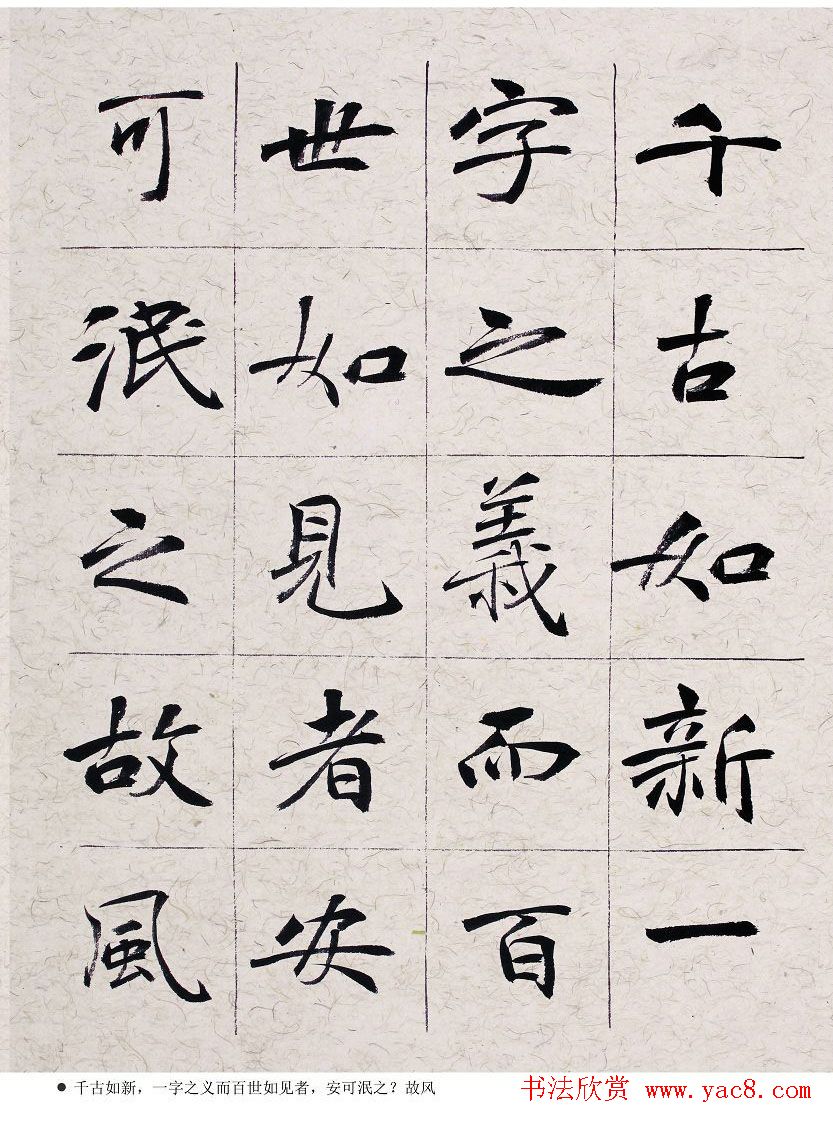 千古如新一
字之義而百
世如見者安
可泯之故風
● 千古如新，一字之义而百世如见者，安可泯之？故风
书法欣赏 www.yac8.com